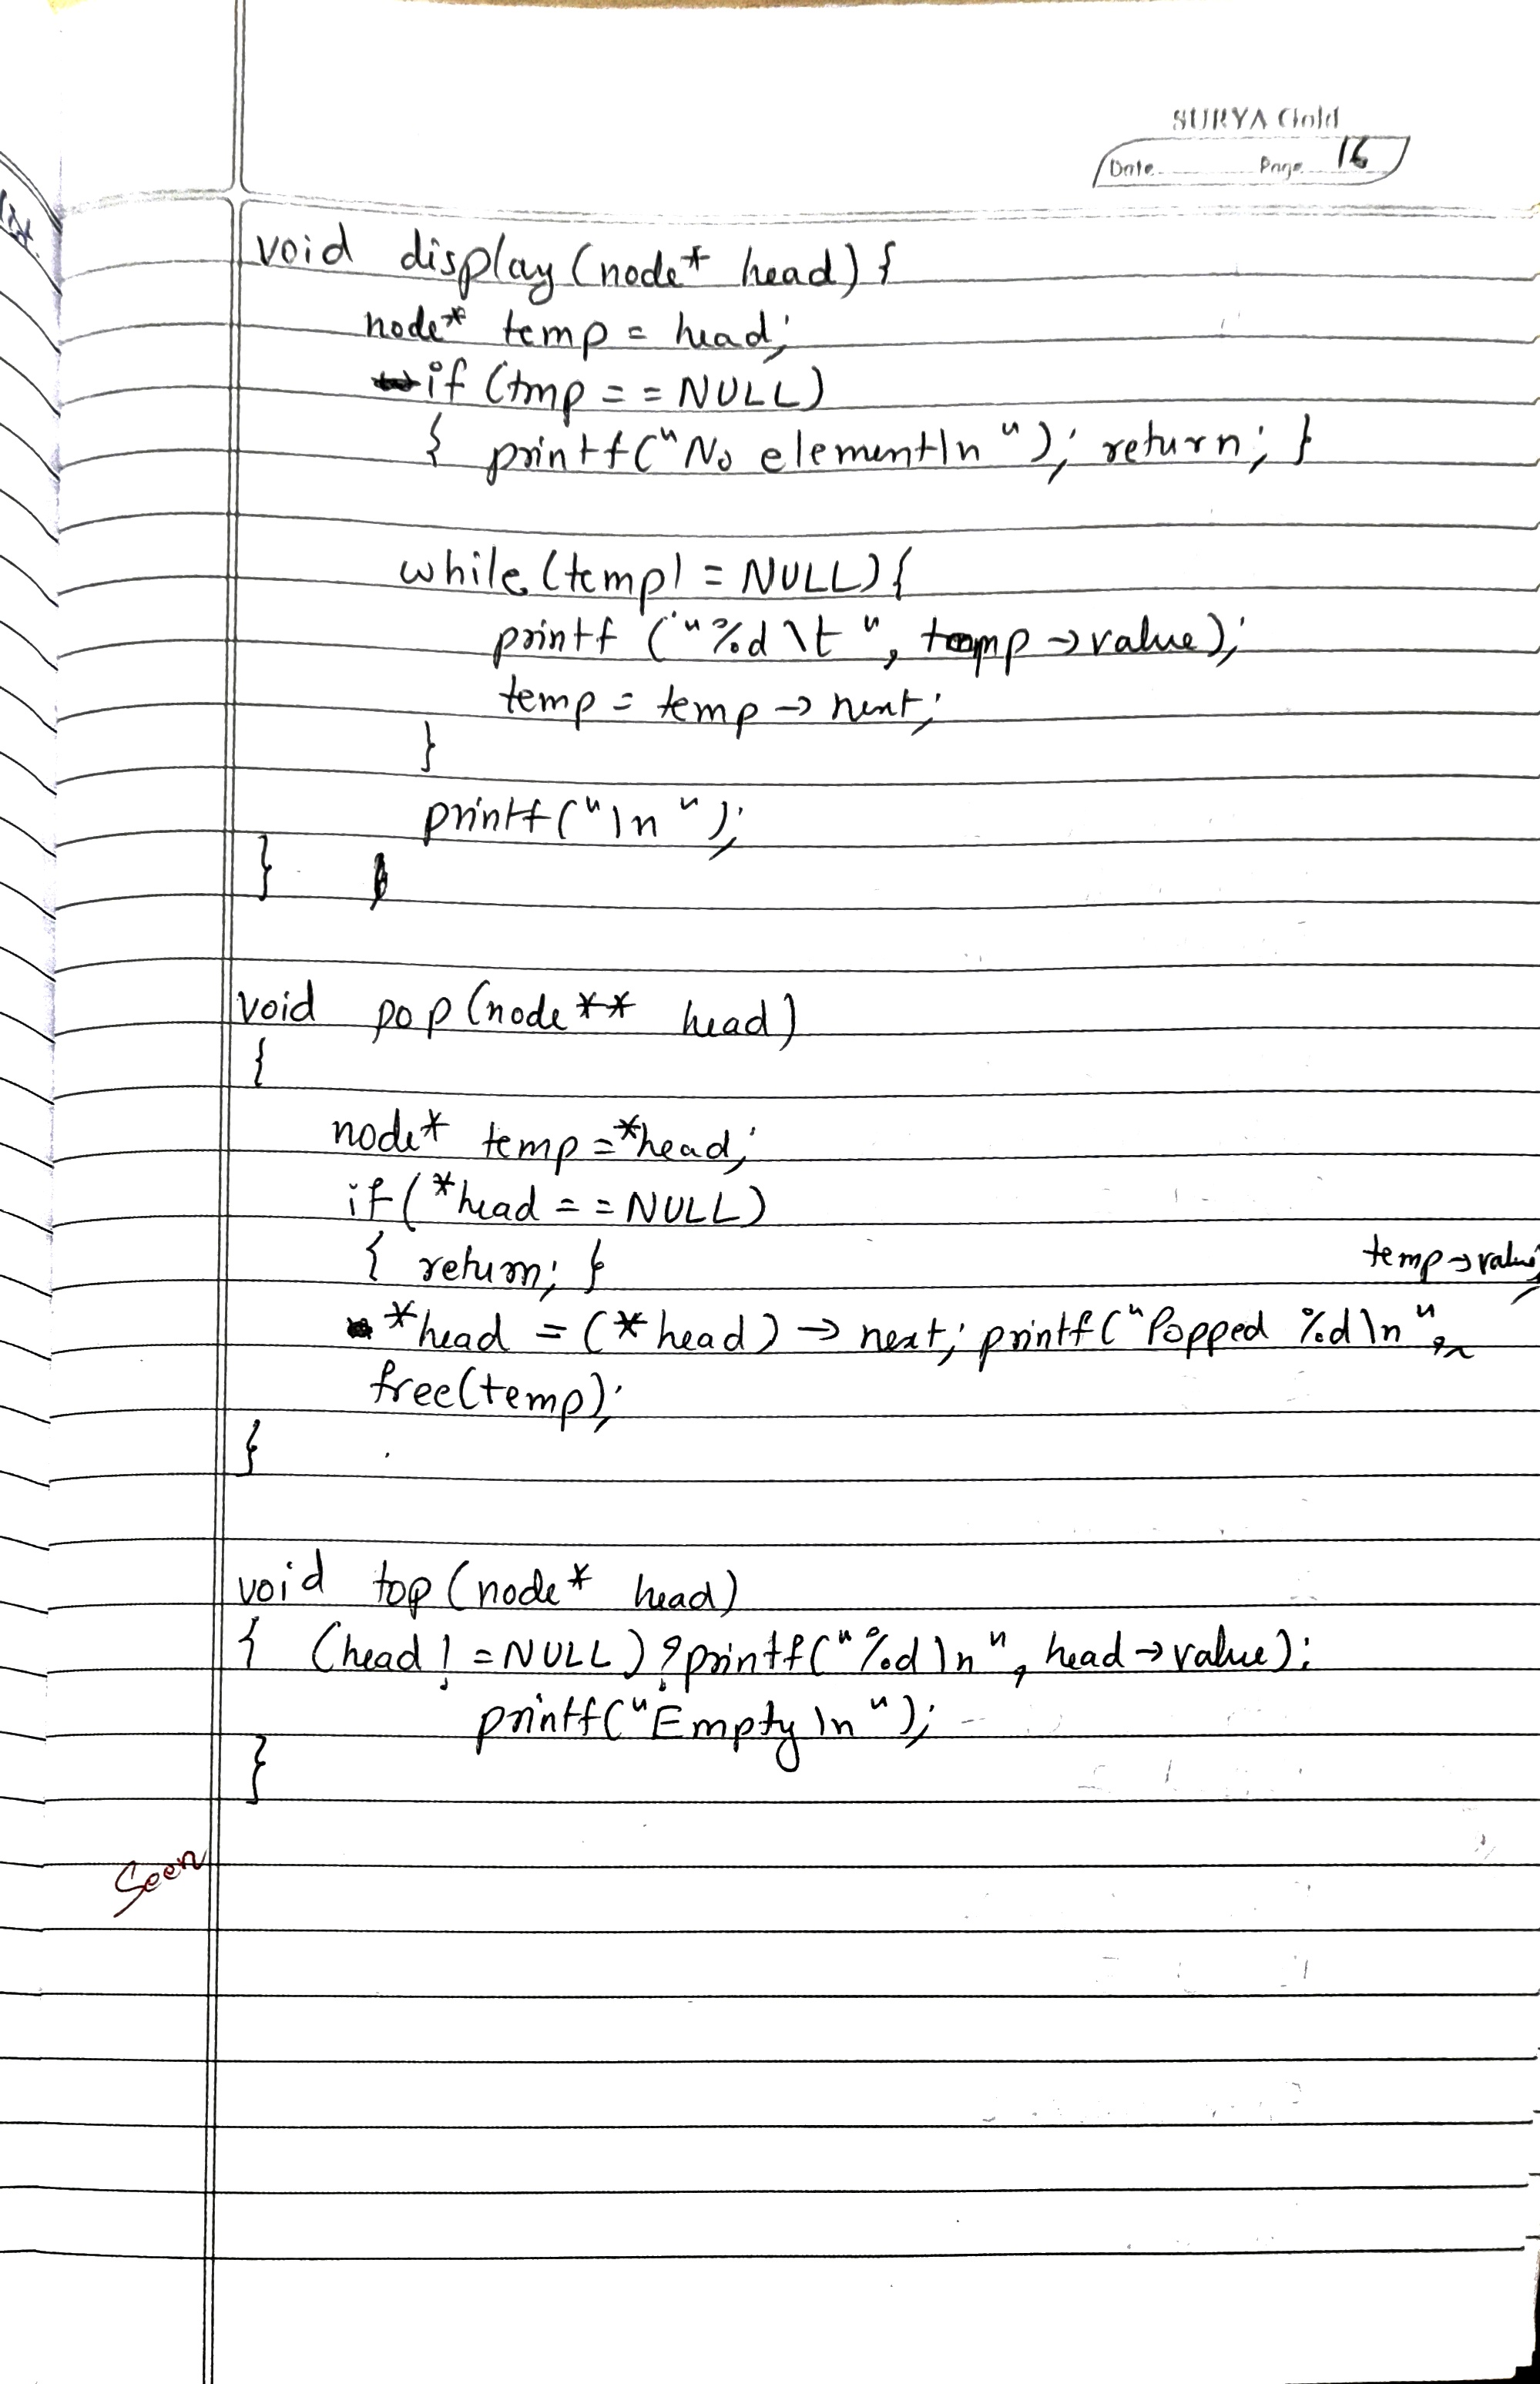 SURYA Gold
Date Page 16
void display (node* head) {
node* temp = head;
if (tmp == NULL)
{ printf("No element\n"); return; }
while (temp != NULL) {
printf ("%d \t ", temp → value);
temp = temp → next;
}
printf("\n ");
}
void pop (node ** head)
{
node* temp = *head;
if (*head == NULL)
{ return; }
temp → value;
*head = (* head) → next; printf("Popped %d\n",
free(temp);
}
void top (node* head)
{ (head != NULL) ? printf("%d \n", head → value) :
printf("Empty \n");
}
Seen